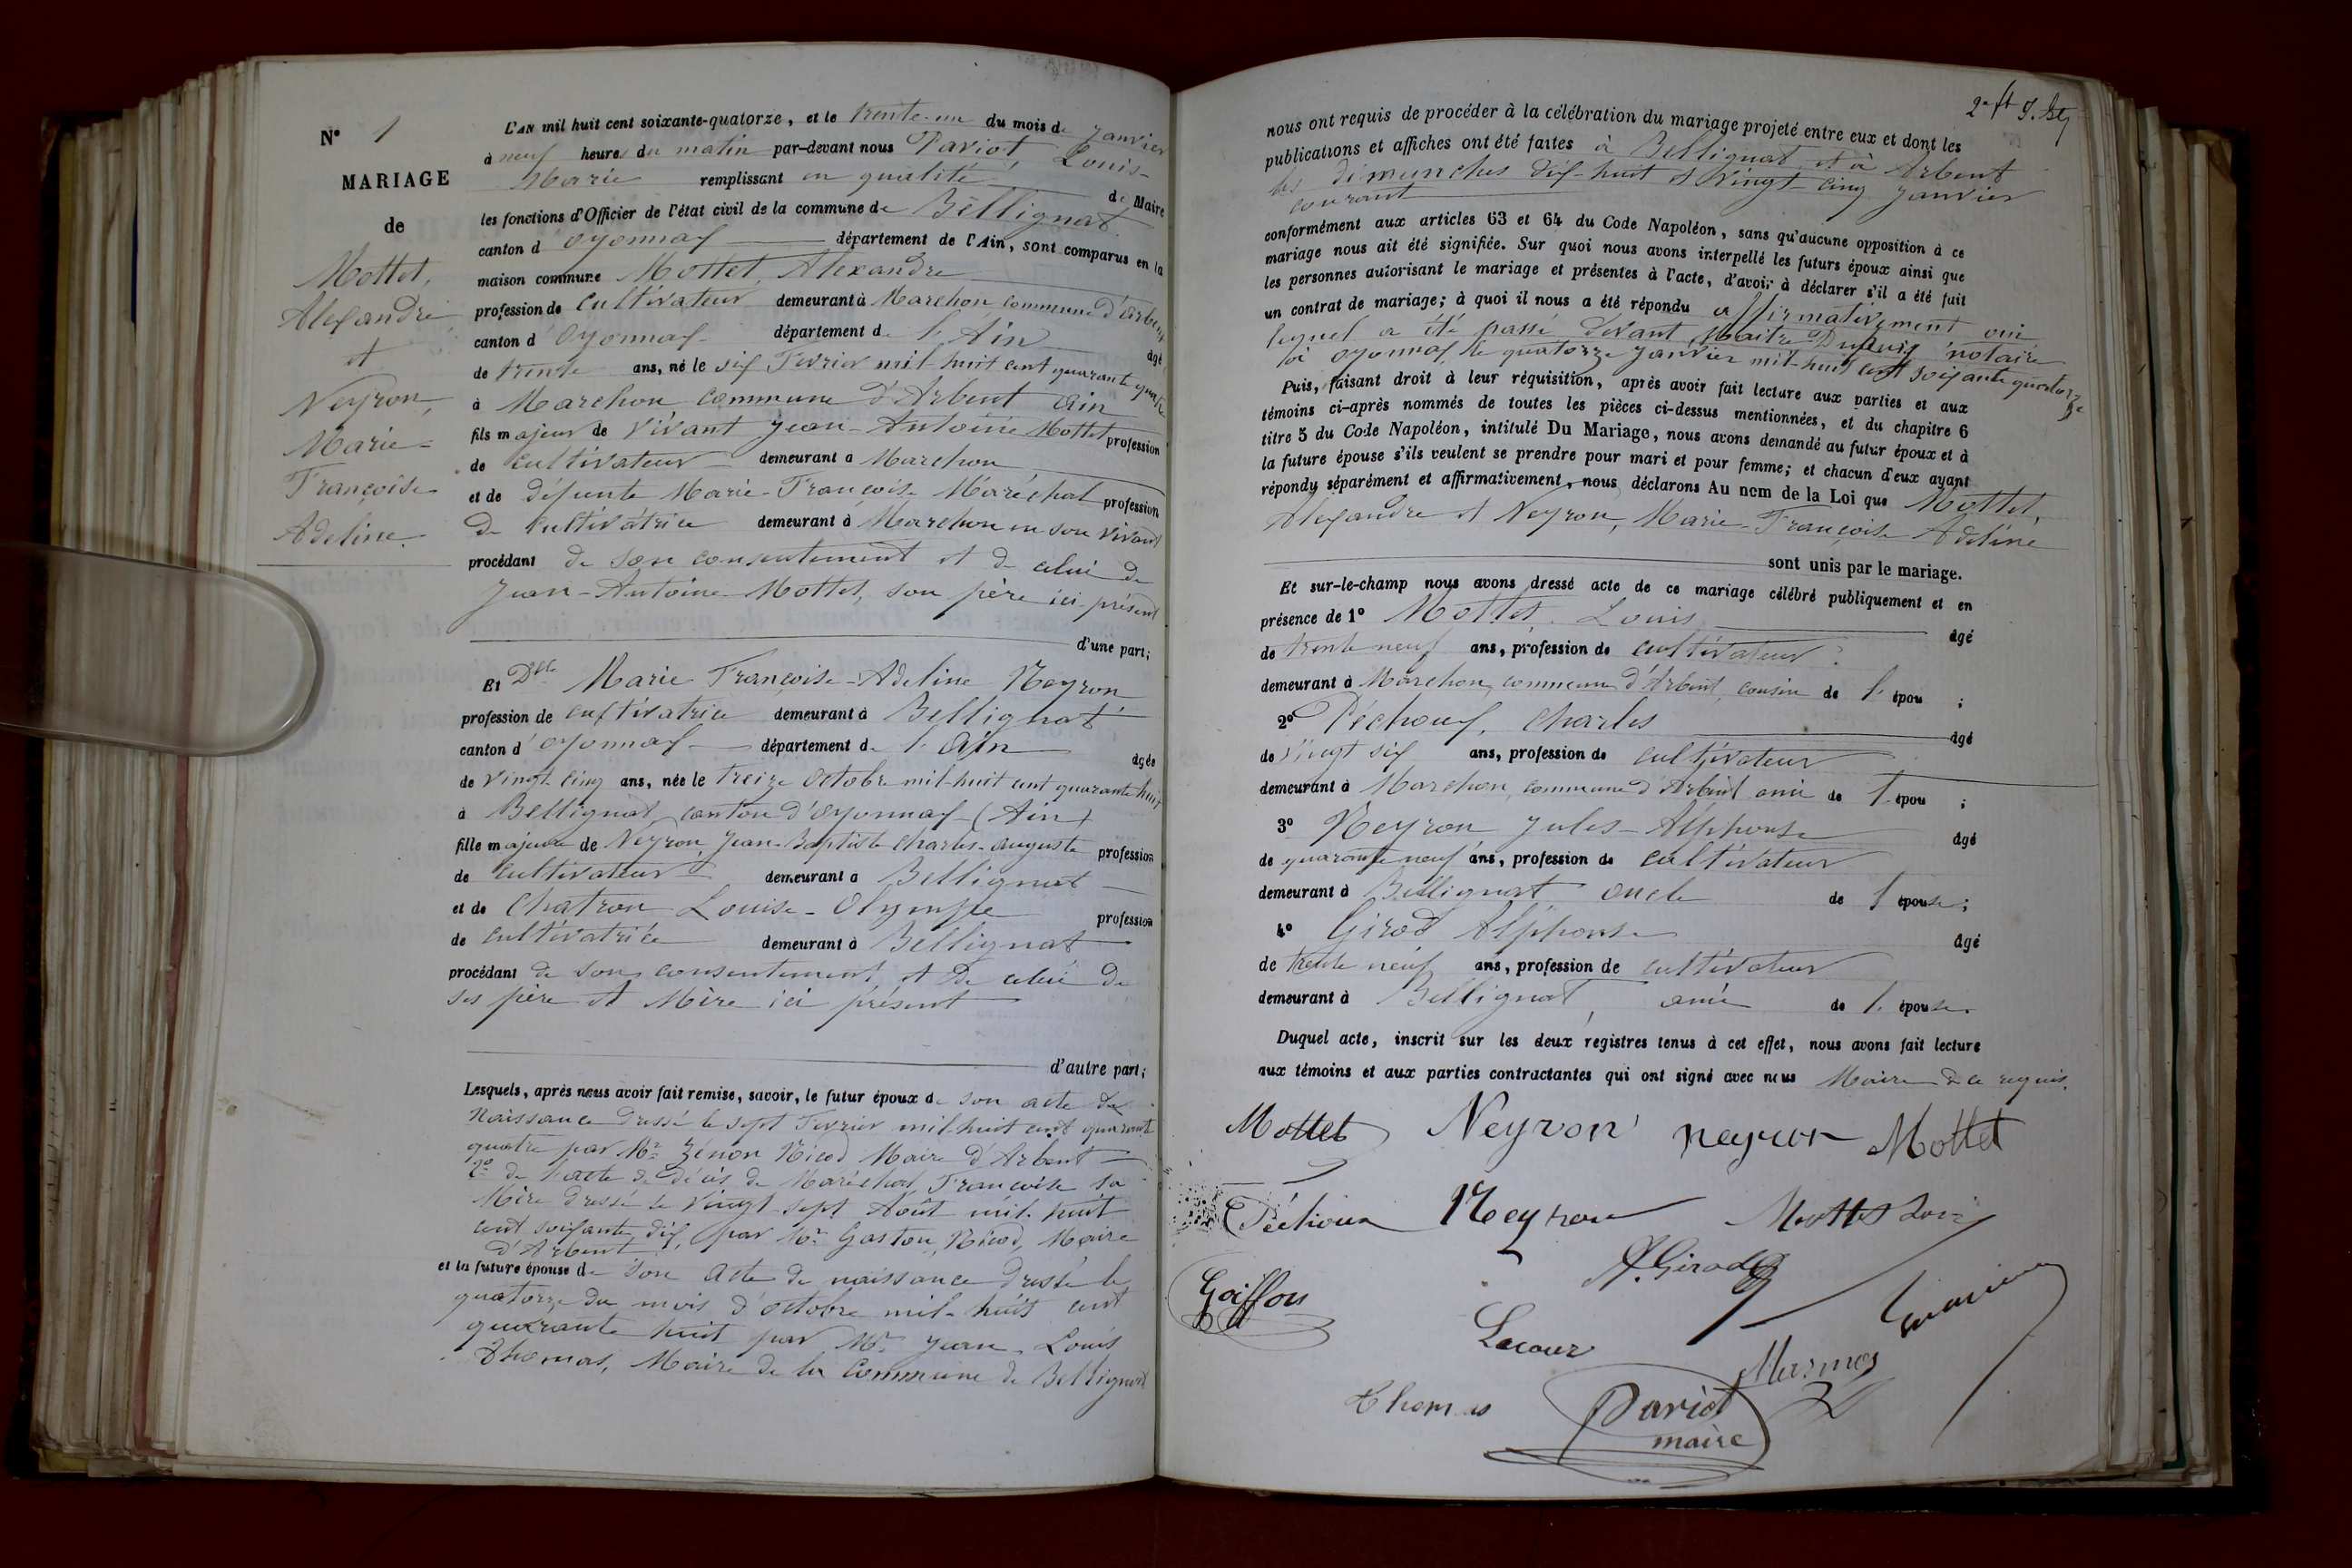 N° 1
MARIAGE
de
Mottet,
Alexandre
et
Neyron,
Marie-
Françoise
Adeline.
L'AN mil huit cent soixante-quatorze, et le trente-un du mois de Janvier
à neuf heures du matin par-devant nous Pariot, Louis-
Marie remplissant en qualité de Maire
les fonctions d'Officier de l'état civil de la commune de Bellignat
canton d'Oyonnax département de l'Ain, sont comparus en la
maison commune Mottet, Alexandre
profession de Cultivateur demeurant à Marchon, commune d'Arbent
canton d'Oyonnax département de l'Ain âgé
de trente ans, né le six Fevrier mil-huit cent quarante quatre
à Marchon commune d'Arbent Ain
fils majeur de vivant Jean-Antoine Mottet profession
de cultivateur demeurant à Marchon
et de défunte Marie-Françoise Maréchal profession
de Cultivatrice demeurant à Marchon en son vivant
procédant de son consentement et de celui de
Jean-Antoine Mottet, son père ici présent
d'une part;
Et Dlle Marie Françoise-Adeline Neyron
profession de cultivatrice demeurant à Bellignat
canton d'Oyonnax département de l'Ain âgée
de vingt cinq ans, née le treize Octobre mil-huit cent quarante huit
à Bellignat, canton d'Oyonnax (Ain)
fille majeure de Neyron, Jean-Baptiste Charles-Auguste profession
de cultivateur demeurant à Bellignat
et de Chatron Louise-Olympe profession
de cultivatrice demeurant à Bellignat
procédant de son consentement et de celui de
ses père et Mère ici présent
d'autre part;
Lesquels, après nous avoir fait remise, savoir, le futur époux de son acte de
Naissance dressé le sept Fevrier mil-huit cent quarante
quatre par Mr Zénon Nicod Maire d'Arbent
2° de l'acte de décès de Maréchal Françoise sa
Mère dressé le vingt-sept Août mil-huit
cent soixante dix, par Mr Gaston Nicod, Maire
d'Arbent
et la future épouse de son acte de naissance dressé le
quatorze du mois d'octobre mil-huit cent
quarante huit par Mr Jean-Louis
Thomas, Maire de la Commune de Bellignat
nous ont requis de procéder à la célébration du mariage projeté entre eux et dont les
publications et affiches ont été faites à Bellignat et à Arbent
les dimanches dix-huit et vingt-cinq Janvier
courant
conformément aux articles 63 et 64 du Code Napoléon, sans qu'aucune opposition à ce
mariage nous ait été signifiée. Sur quoi nous avons interpellé les futurs époux ainsi que
les personnes autorisant le mariage et présentes à l'acte, d'avoir à déclarer s'il a été fait
un contrat de mariage; à quoi il nous a été répondu affirmativement oui
lequel a été passé devant Maître notaire
à Oyonnax, le quatorze Janvier mil-huit cent soixante quatorze
Puis, faisant droit à leur réquisition, après avoir fait lecture aux parties et aux
témoins ci-après nommés de toutes les pièces ci-dessus mentionnées, et du chapitre 6
titre 5 du Code Napoléon, intitulé Du Mariage, nous avons demandé au futur époux et à
la future épouse s'ils veulent se prendre pour mari et pour femme; et chacun d'eux ayant
répondu séparément et affirmativement, nous déclarons Au nom de la Loi que Mottet,
Alexandre et Neyron, Marie-Françoise Adeline
sont unis par le mariage.
Et sur-le-champ nous avons dressé acte de ce mariage célébré publiquement et en
présence de 1° Mottet, Louis âgé
de trente neuf ans, profession de cultivateur
demeurant à Marchon, commune d'Arbent, cousin de l'époux;
2° Péchoux, Charles âgé
de vingt six ans, profession de cultivateur
demeurant à Marchon, commune d'Arbent ami de l'époux;
3° Neyron Jules-Alphonse âgé
de quarante neuf ans, profession de cultivateur
demeurant à Bellignat oncle de l'épouse;
4° Girod Alphonse âgé
de trente neuf ans, profession de cultivateur
demeurant à Bellignat, ami de l'épouse.
Duquel acte, inscrit sur les deux registres tenus à cet effet, nous avons fait lecture
aux témoins et aux parties contractantes qui ont signé avec nous Maire de ce requis.
Mottet Neyron neyron Mottet
Péchoux Neyron Mottet Louis
A. Girod
Goiffon
Lacour
Marmos
Thomas
Pariot
maire